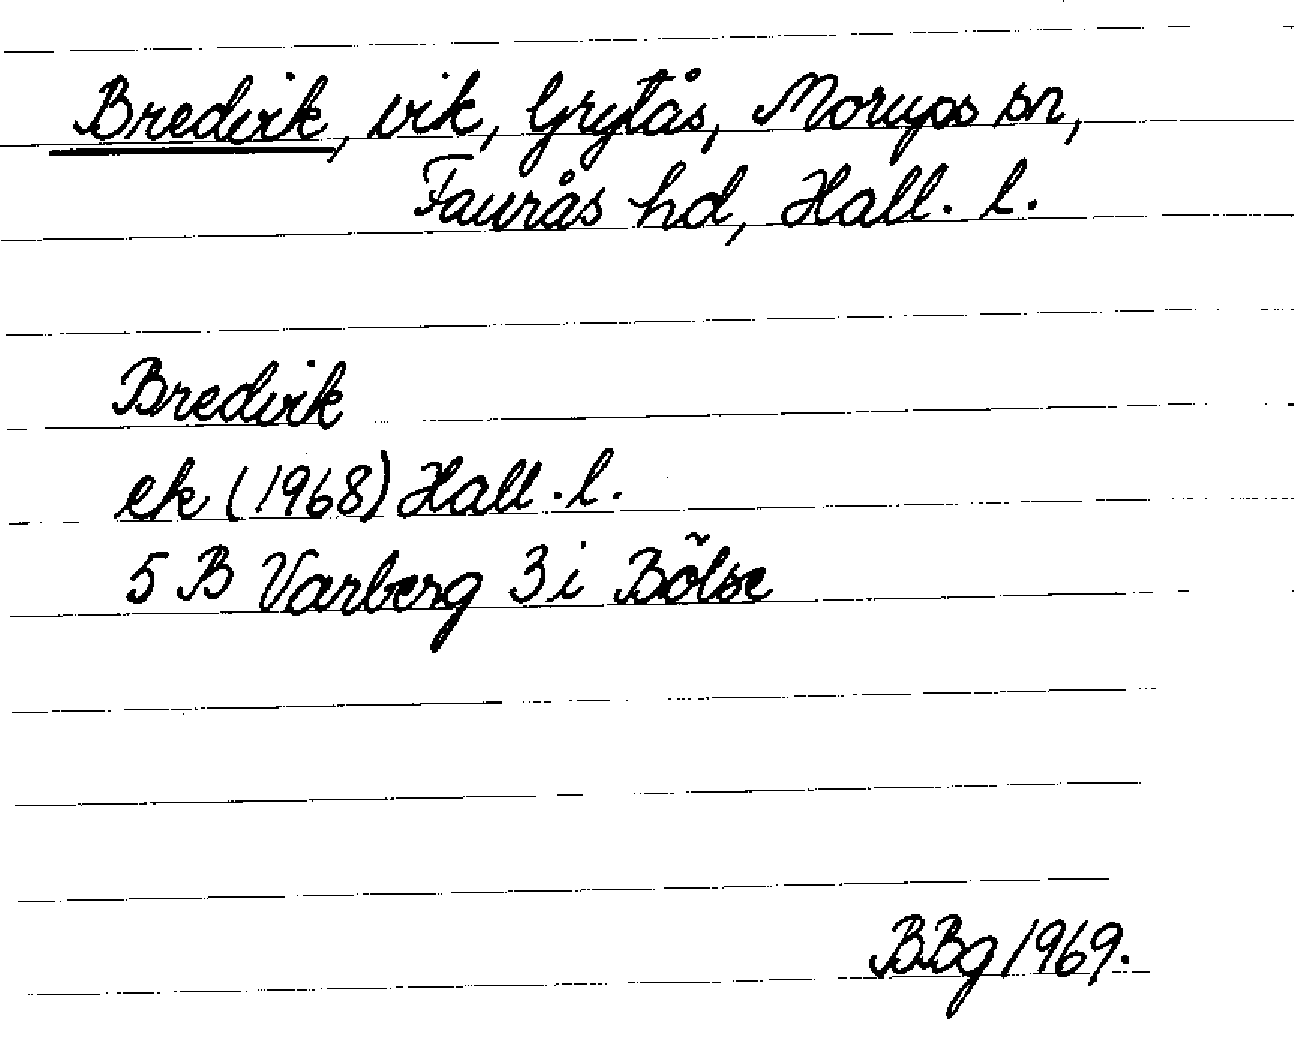 Bredvik, vik, Grytås, Morups sn,
Faurås hd, Hall. l.
Bredvik
ek (1968) Hall. l.
5 B Varberg 3i Bölse
BBg 1969.